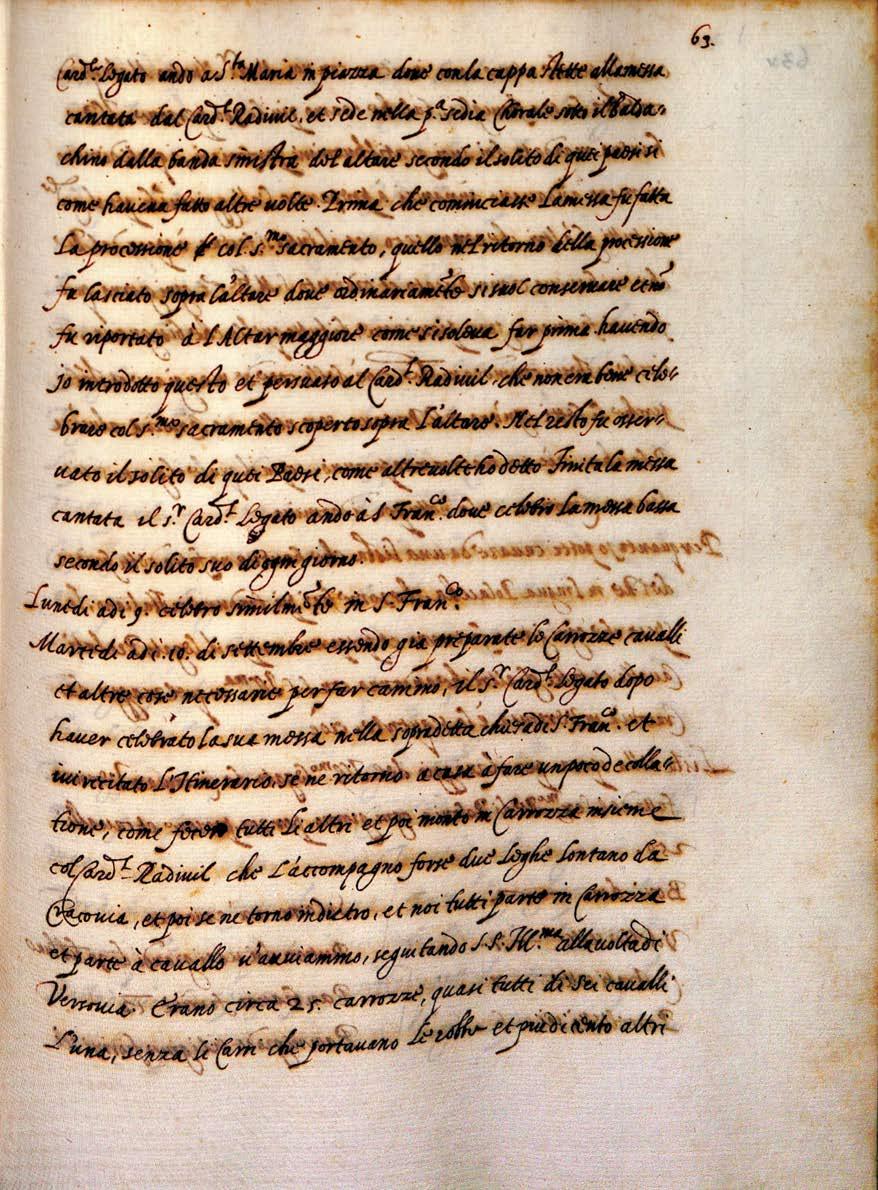 63.
Card.le Legato andò a S.ta Maria in piazza doue con la cappa stette alla messa
cantata dal Card.l Radiuil, et sede nella p.a sedia Chorale sotto il balda=
chino dalla banda sinistra del altare secondo il solito di quei paesi si
come haueua fatto altre uolte. Prima che cominciasse La messa fu fatta
La processione col S.mo sacramento, quello nel ritorno della processione
fu lasciato sopra l'altare doue ordinariamẽte si suol conseruare et nõ
fu riportato à l'Altar maggiore come si soleua far prima hauendo
Io introdotto questo et persuaso al Card.l Radiuil che non era bene cele=
brare col S.mo sacramento scoperto sopra L'altare. Nel resto fu osser=
uato il solito di quei Paesi, come altre uolte ho detto Finita la messa
cantata il s.r Card.l Legato andò à S. Fran.co doue celebro la messa bassa
secondo il solito suo di ogni giorno.
Lunedi adi 9. celebro similmẽte in S. Fran.co
Martedi adi .10. di settembre essendo gia preparate le Carrozze caualli
et altre cose necessarie per far camino, il s.r Card.l Legato dopo
hauer celebrato la sua messa nella sopradetta chiesa di S. Fran.co et
iui recitato L'Itinerario, se ne ritorno a casa à fare un poco de colla=
tione, come fecero tutti li altri et poi monto in Carrozza insieme
col Card.l Radiuil che L'accompagno forse due Leghe Lontano da
Cracouia, et poi se ne torno indietro, et noi tutti parte in Carrozza
et parte à cauallo n'auuiammo, seguitando S.S. Ill.ma alla uolta di
Versouia. Erano circa 25. carrozze, quasi tutti di sei caualli
L'una, senza li Carri che portauano Le robbe et piu di cento altri